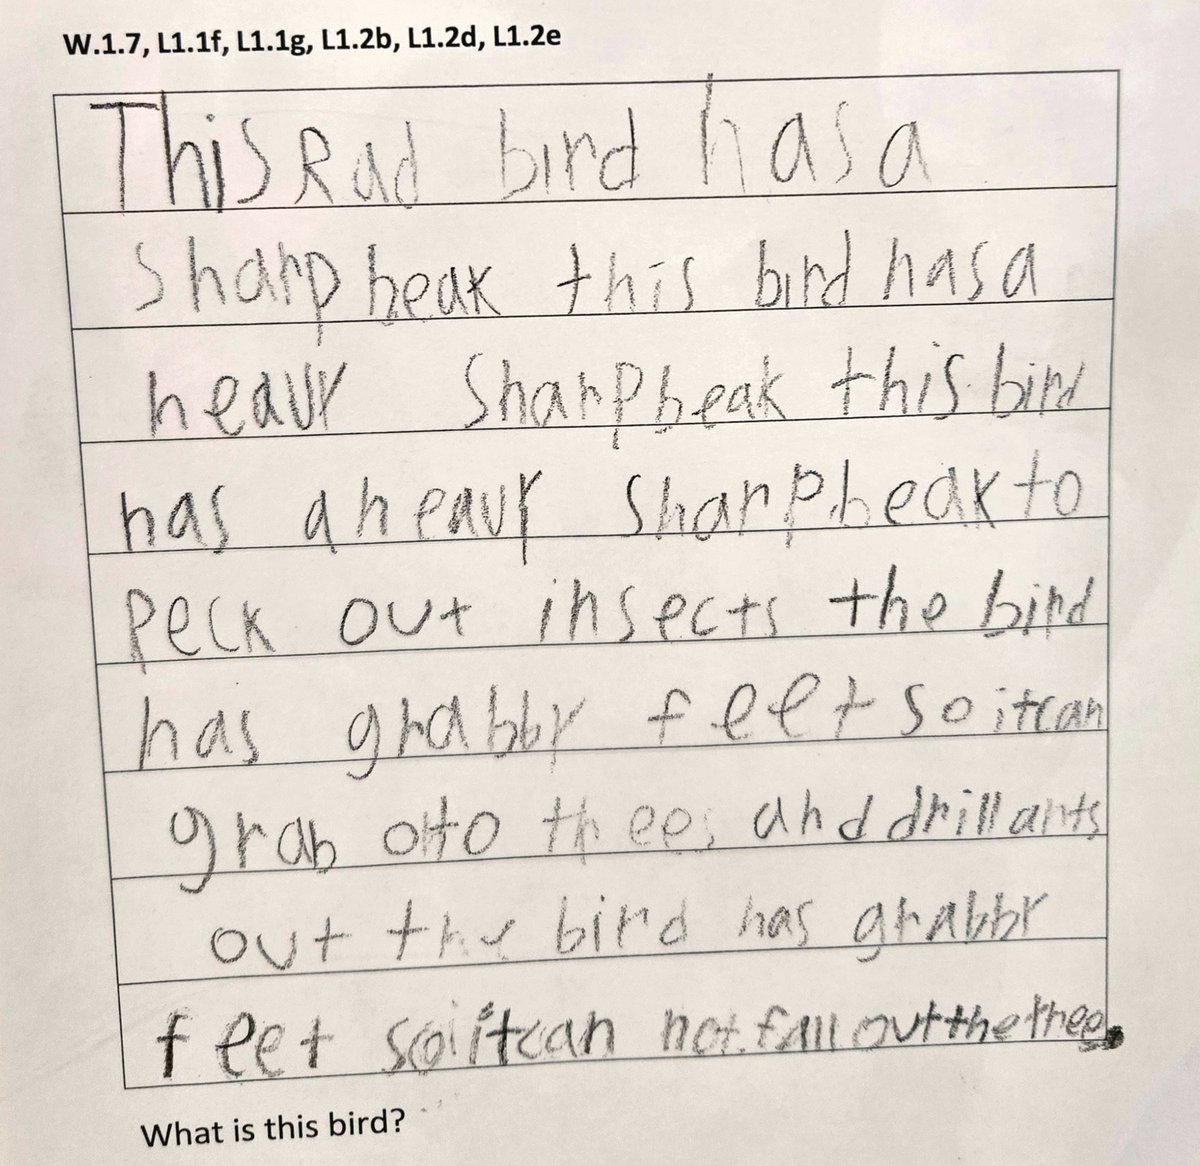 W.1.7, L1.1f, L1.1g, L1.2b, L1.2d, L1.2e
This Rad bird has a
sharp beak this bird has a
heavy sharp beak this bird
has a heavy sharp beak to
peck out insects the bird
has grabby feet so it can
grab onto trees and drill ants
out the bird has grabby
feet so it can not fall out the tree.
What is this bird?